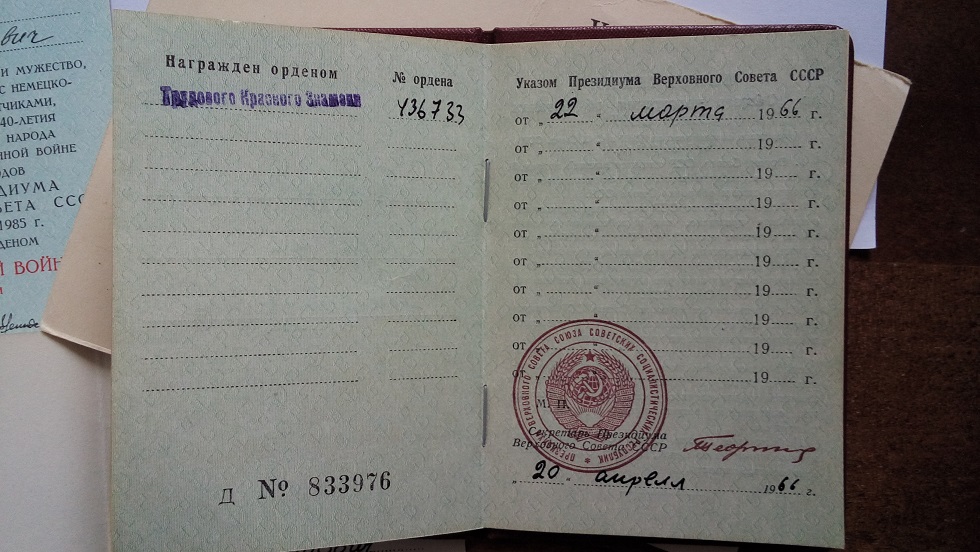 вич
И МУЖЕСТВО,
С НЕМЕЦКО-
ТЧИКАМИ,
40-ЛЕТИЯ
НАРОДА
ННОЙ ВОЙНЕ
ОДОВ
ДИУМА
ВЕТА ССС
1985 г.
ДЕНОМ
Й ВОЙН
Награжден орденом
№ ордена
Трудового Красного Знамени
436733
Д № 833976
Указом Президиума Верховного Совета СССР
от „ 22 “ марта 19 66 г.
от „ “ 19 г.
от „ “ 19 г.
от „ “ 19 г.
от „ “ 19 г.
от „ “ 19 г.
от „ “ 19 г.
от „ “ 19 г.
от „ “ 19 г.
от „ 19 г.
ПРЕЗИДИУМ ВЕРХОВНОГО СОВЕТА СОЮЗА СОВЕТСКИХ СОЦИАЛИСТИЧЕСКИХ РЕСПУБЛИК
М. П.
Секретарь Президиума
Верховного Совета СССР
„ 20 “ апреля 19 66 г.